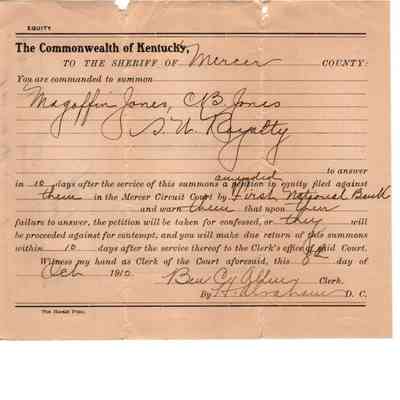 EQUITY
The Commonwealth of Kentucky,
TO THE SHERIFF OF Mercer COUNTY:
You are commanded to summon
Magoffin Jones, C B Jones
S. W. Royalty
to answer
amended
in 10 days after the service of this summons a petition in equity filed against
them in the Mercer Circuit Court by First National Bank
and warn them that upon their
failure to answer, the petition will be taken for confessed, or they will
be proceeded against for contempt, and you will make due return of this summons
within 10 days after the service thereof to the Clerk's office of said Court.
Witness my hand as Clerk of the Court aforesaid, this 8th day of
Oct 1910 Ben C. Allin Clerk.
By D. C.
The Herald Print.